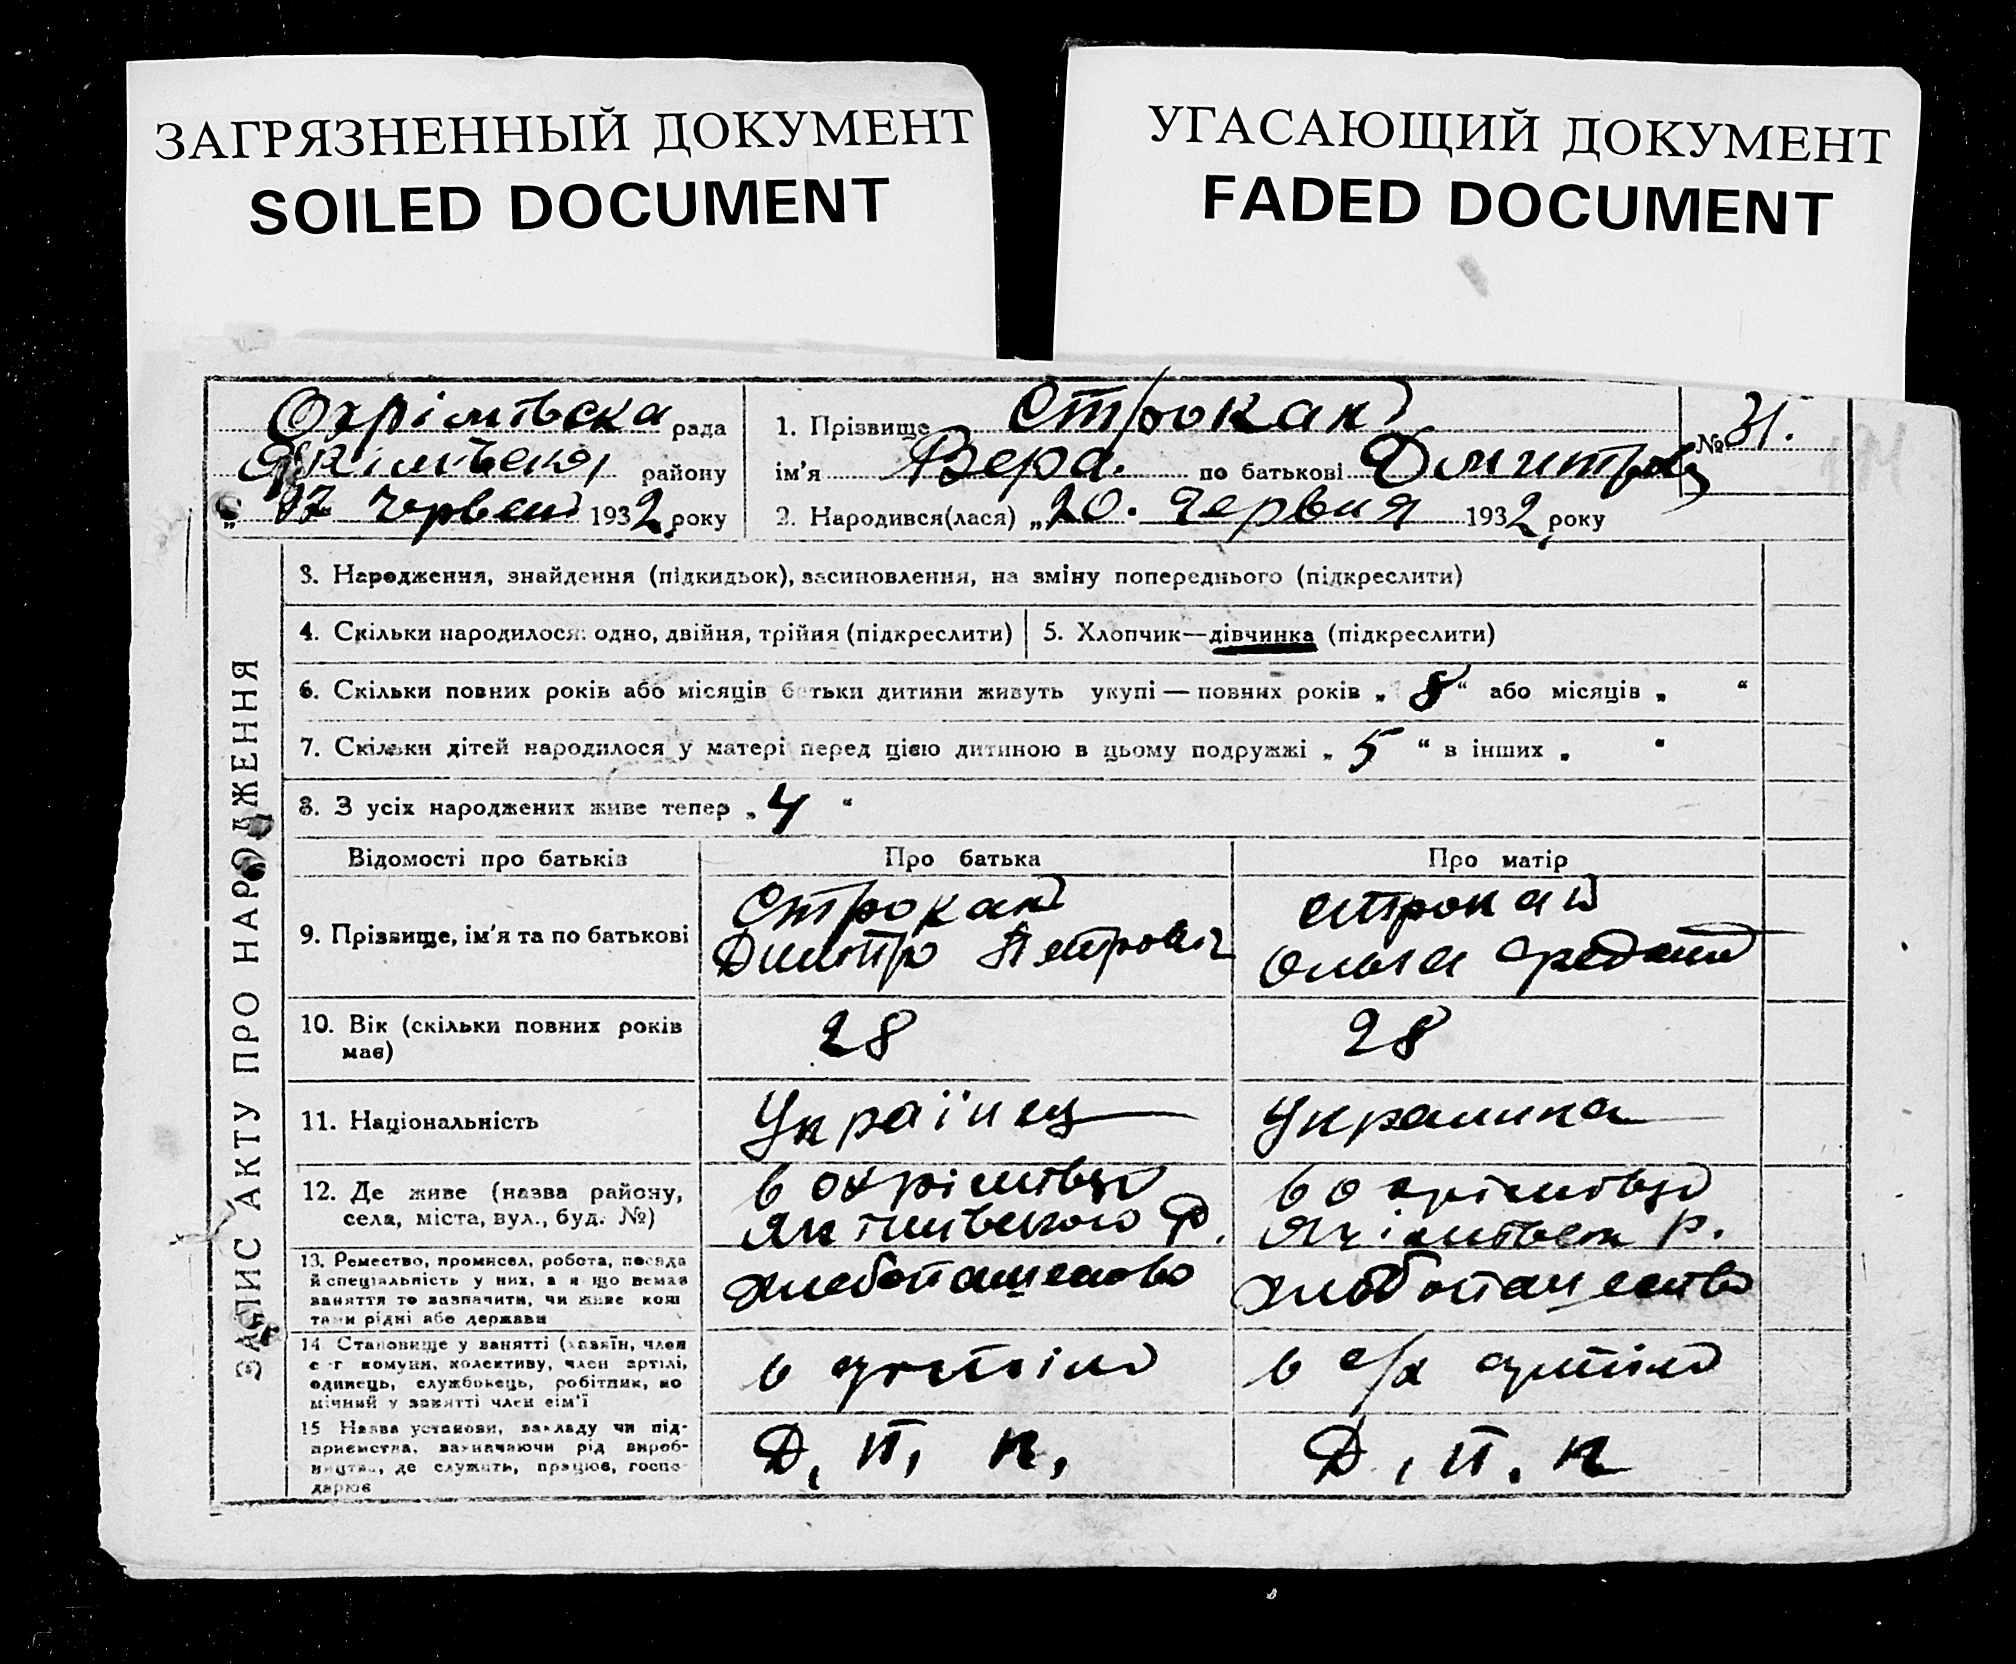 ЗАГРЯЗНЕННЫЙ ДОКУМЕНТ
SOILED DOCUMENT
УГАСАЮЩИЙ ДОКУМЕНТ
FADED DOCUMENT
Охрімівська рада
району
червень 1932 року
1. Прізвище Строкань
№ 31.
ім'я Вера. по батькові Дмитров
2. Народився(лася) „20. червня 1932 року
ЗАПИС АКТУ ПРО НАРОДЖЕННЯ
3. Народження, знайдення (підкидьок), засиновлення, на зміну попереднього (підкреслити)
4. Скільки народилося: одно, двійня, трійня (підкреслити)
5. Хлопчик—дівчинка (підкреслити)
6. Скільки повних років або місяців батьки дитини живуть укупі — повних років „ 8 “ або місяців „ “
7. Скільки дітей народилося у матері перед цією дитиною в цьому подружжі „ 5 “ в інших „ “
8. З усіх народжених живе тепер „ 4 “
Відомості про батьків
Про батька
Про матір
9. Прізвище, ім'я та по батькові
Строкань
Дмитро Петрович
Строкань
Ольга
10. Вік (скільки повних років
має)
28
28
11. Національність
Українец
Украинка
12. Де живе (назва району,
села, міста, вул., буд. №)
в Охрімівці
Якімівського Р.
в Охрімівці
р.
13. Ремество, промисел, робота, посада
й спеціяльність у них, а як що немає
заняття то зазначити, чи живе кош
тами рідні або держави
хлебопашество
хлебопашество
14. Становище у занятті (хазяїн, член
с-г комуни, колективу, член артілі,
одинець, службовець, робітник, по
мічний у занятті член сім'ї
в артілі
в с/х артілі
15 Назва установи, закладу чи під-
приємства, зазначаючи рід вироб-
ництва, де служить, працює, госпо-
дарює
Д, П, К,
Д, П. К